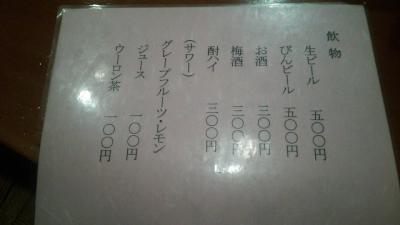 飲物
生ビール 五〇〇円
びんビール 五〇〇円
お酒 三〇〇円
梅酒 三〇〇円
酎ハイ 三〇〇円
(サワー)
グレープフルーツ・レモン
ジュース 一〇〇円
ウーロン茶 一〇〇円